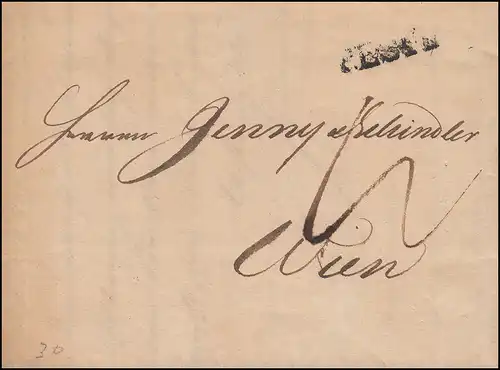 PESTH
Herren Jenny & Schindler
Wien
30